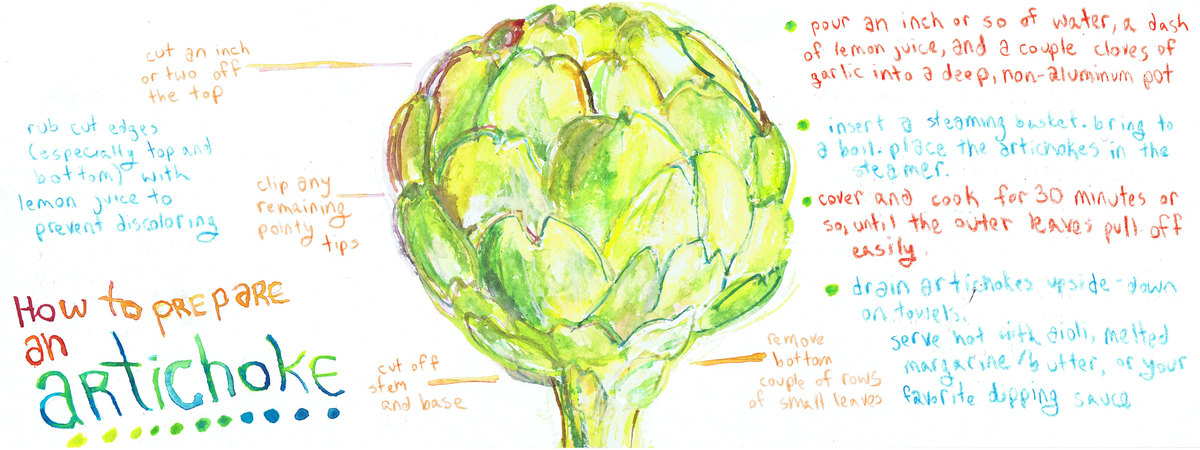 cut an inch
or two off
the top
rub cut edges
(especially top and
bottom) with
lemon juice to
prevent discoloring
clip any
remaining
pointy
tips
How to prepare
an
artichoke
cut off
stem
and base
remove
bottom
couple of rows
of small leaves
pour an inch or so of water, a dash
of lemon juice, and a couple cloves of
garlic into a deep, non-aluminum pot
insert a steaming basket. bring to
a boil. place the artichokes in the
steamer.
cover and cook for 30 minutes or
so, until the outer leaves pull off
easily.
drain artichokes upside-down
on towlets.
serve hot with aioli, melted
margarine/butter, or your
favorite dipping sauce